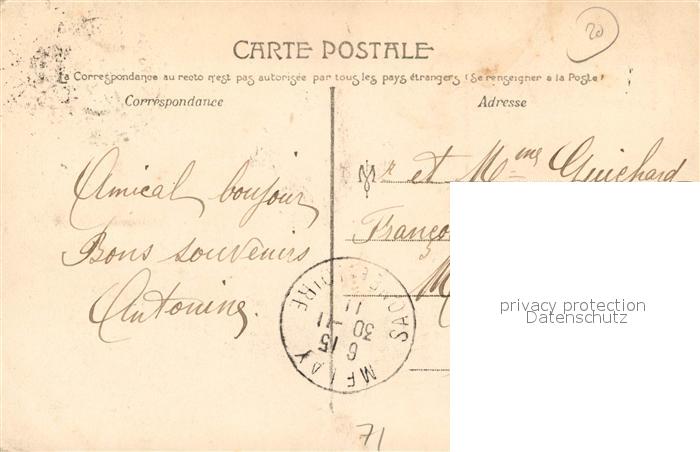 20
CARTE POSTALE
La Correspondance au recto n'est pas autorisée par tous les pays étrangers (Se renseigner a la Poste)
Correspondance
Adresse
Amical bonjour
Bons souvenirs
Antonine.
Mr et Mme Guichard
Franço
M
MELAY
SAONE-ET-LOIRE
6 15
30 -11
11
71
privacy protection
Datenschutz